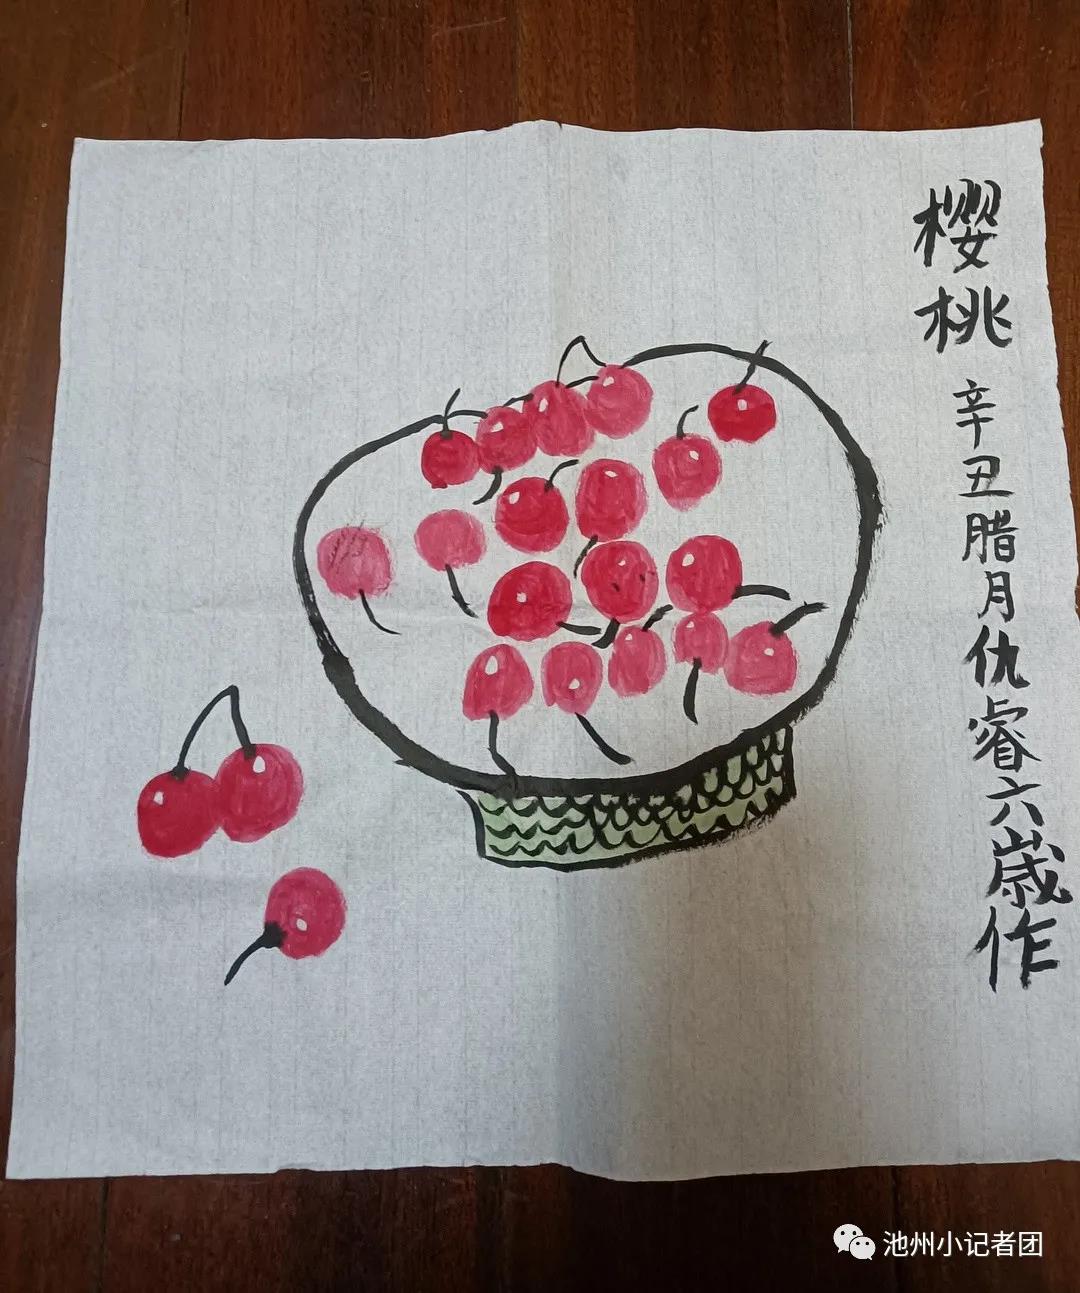 樱桃
辛丑腊月仇睿六歳作
池州小记者团